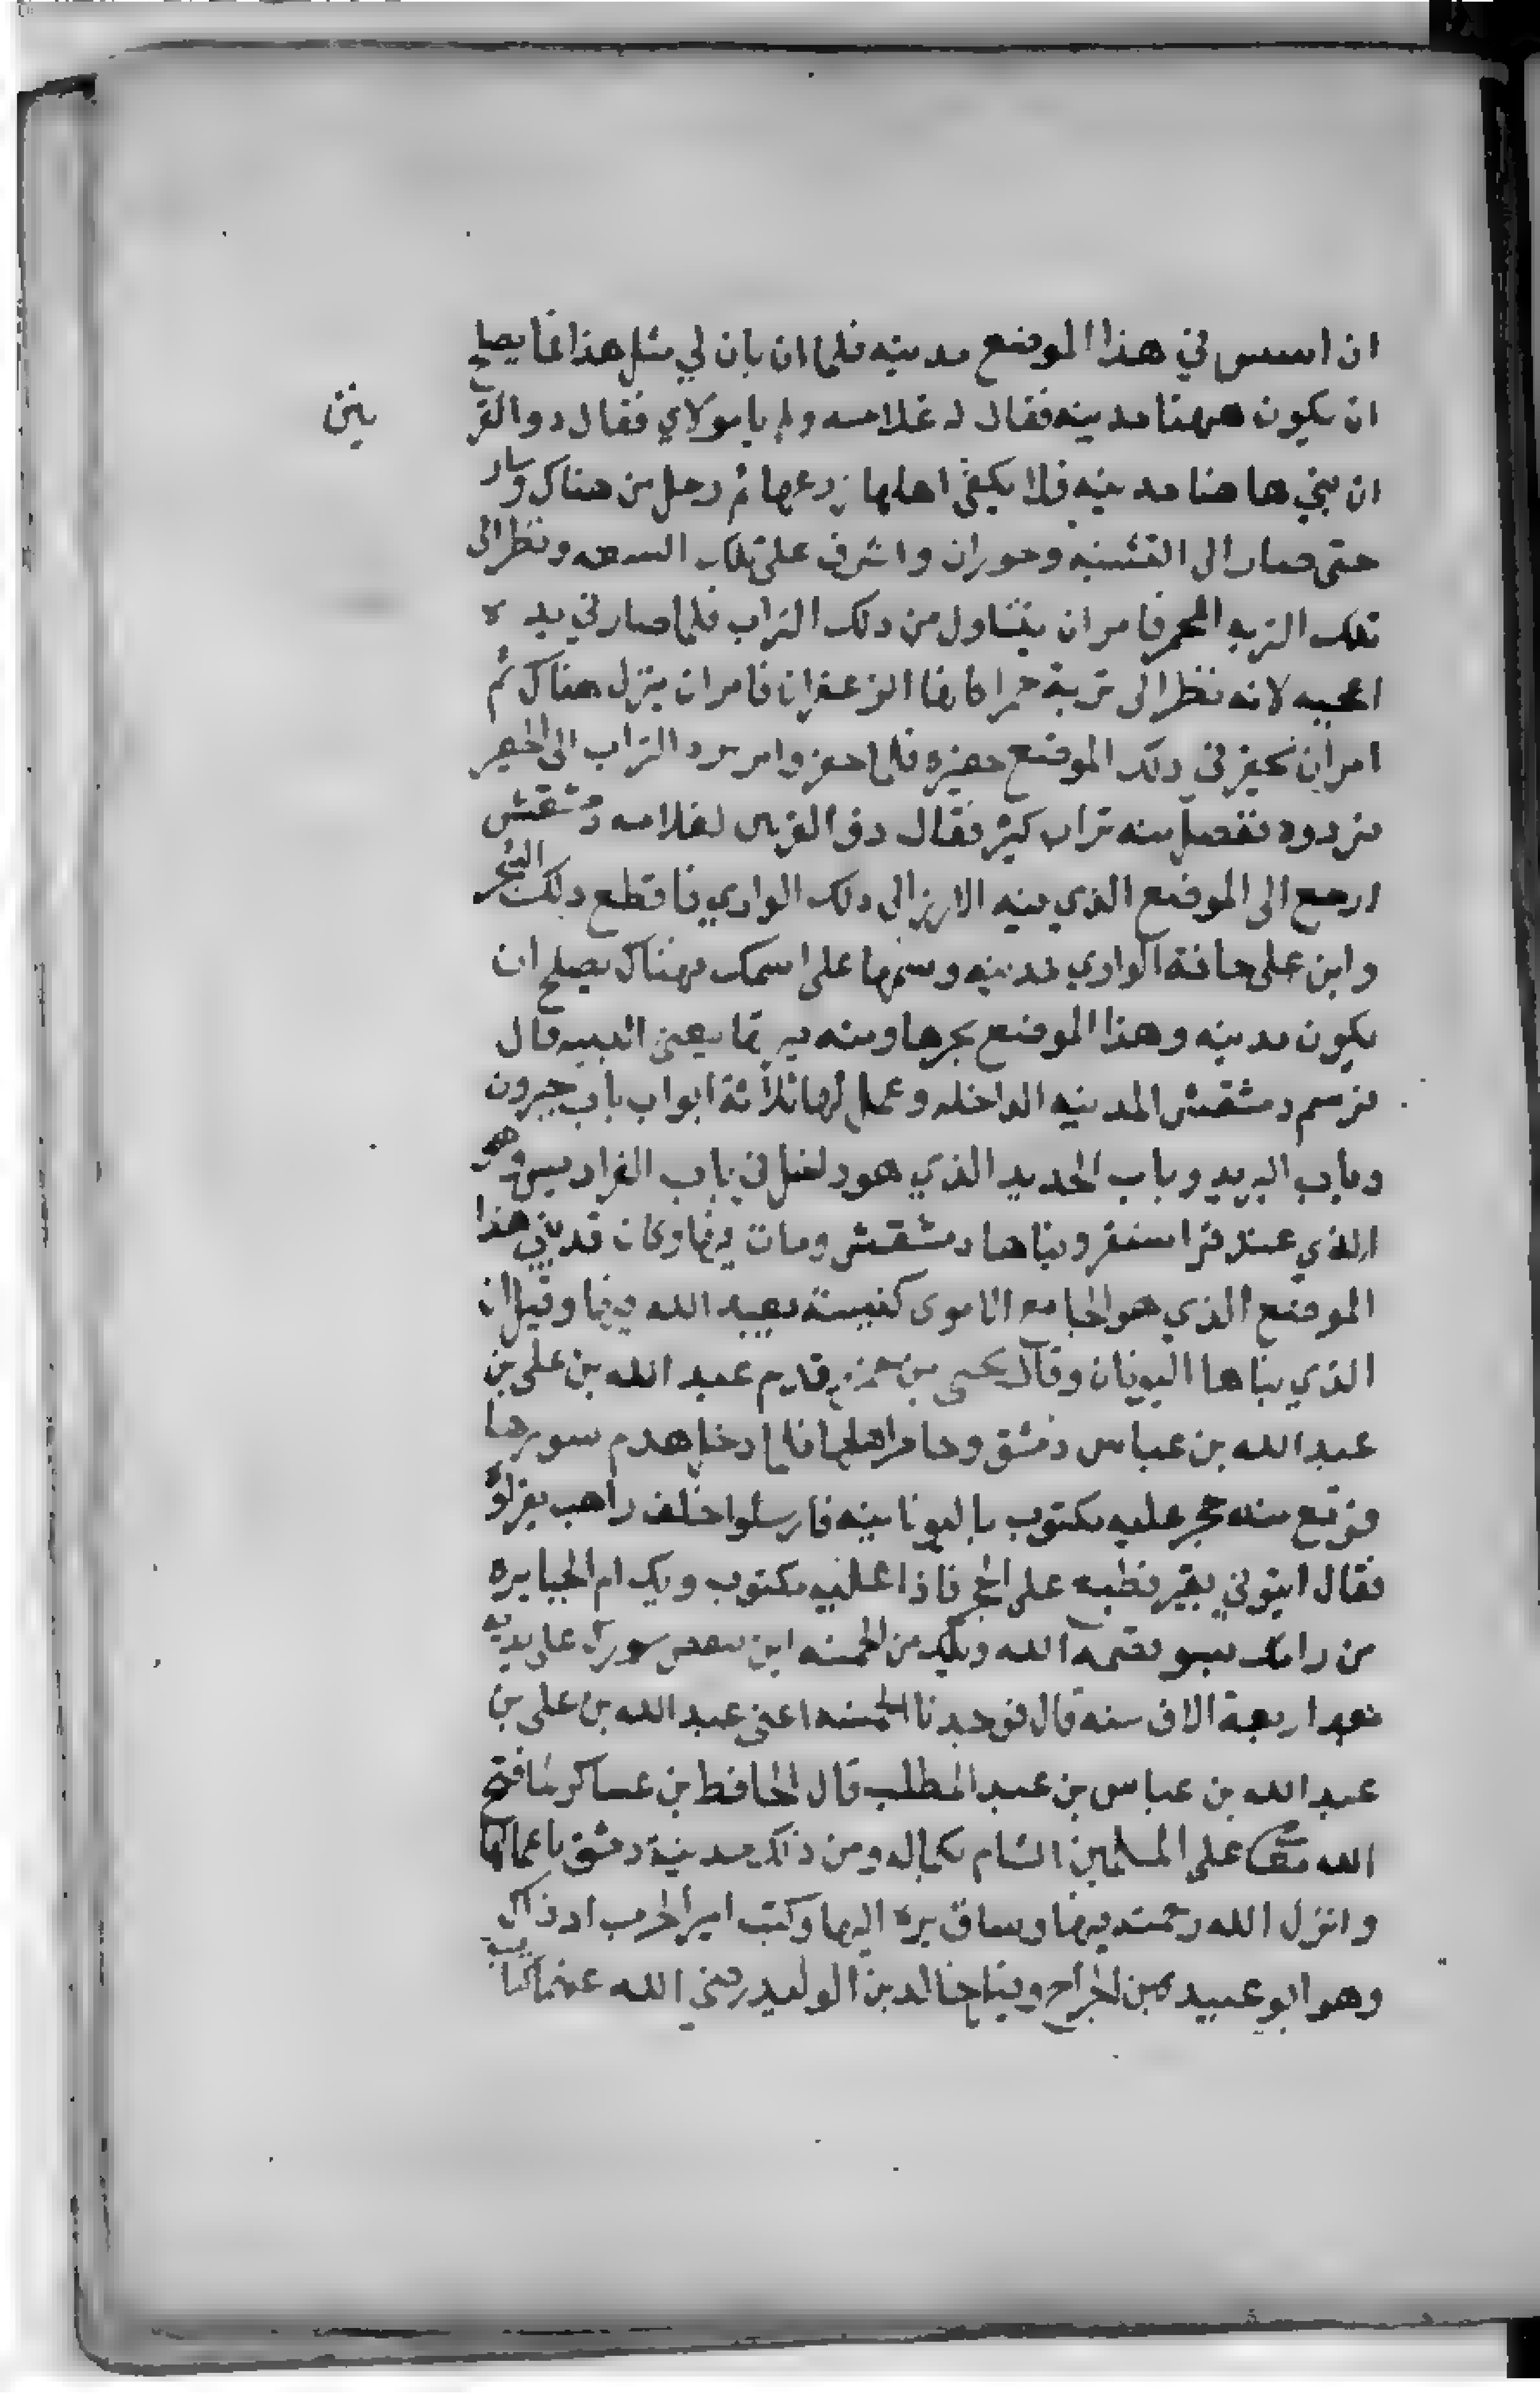 ان اسس في هذا الموضع مدينه فلما ان بان لي مثل هذا فما يصلح
ان يكون ههنا مدينه فقال له غلامه ولم يا مولاي فقال ذو القر
نين
ان بني هاهنا مدينه فلا يكفي اهلها زرعها ثم رحل من هناك وسار
حتى صار الى الثنيه وحوران واشرف على تلك السعه ونظر الى
تلك التربه الحمر فامر ان يتناول من ذلك التراب فلما صار في يده
اعجبه لانه نظر الى تربة حمرا كانها الزعفران فامر ان ينزل هناك ثم
امر ان يحفر في ذلك الموضع حفيره فلما حفر وامر برد التراب الى الحفير
فردوه ففضل منه تراب كثير فقال ذو القرنين لغلامه دمشقش
ارجع الى الموضع الذي فيه الارز الى ذلك الوادي فاقطع ذلك الشجر
وابن على حافة الوادي مدينه وسمها على اسمك فهناك يصلح ان
يكون مدينه وهذا الموضع بحرها ومنه ميرتها يعني الثنيه قال
فرسم دمشقش المدينه الداخله وعمل لها ثلاثة ابواب باب جيرون
وباب البريد وباب الحديد الذي هو داخل في باب الفراديس وهو
الذي عند قراسنقر وبناها دمشقش ومات فيها وكان قد بنى هذا
الموضع الذي هو الجامع الاموى كنيسة يعبد الله فيها وقيل ان
الذي بناها اليونان وقال يحيى بن حمزه قدم عبد الله بن على بن
عبد الله بن عباس دمشق وحاصر اهلها فلما دخل هدم سورها
فوقع منه حجر عليه مكتوب باليونانيه فارسلوا خلف راهب يقراؤ
فقال ايتوني بقير فطبعه على الحجر فاذا عليه مكتوب ويك ام الجبابره
من رامك بسو قصمه الله ويلك من الخمسه اين نقض سورك على يديه
بعد اربعة الاف سنه قال فوجدنا الخمسه اعني عبد الله بن على بن
عبد الله بن عباس بن عبد المطلب قال الحافظ بن عساكر لما فتح
الله تعالى على المسلمين الشام بكماله ومن ذلك مدينة دمشق باعمالها
وانزل الله رحمته فيها وساق بره اليها وكتب امير الحرب اذ ذاك
وهو ابو عبيده بن الجراح وقيل خالد بن الوليد رضي الله عنهما كتاب